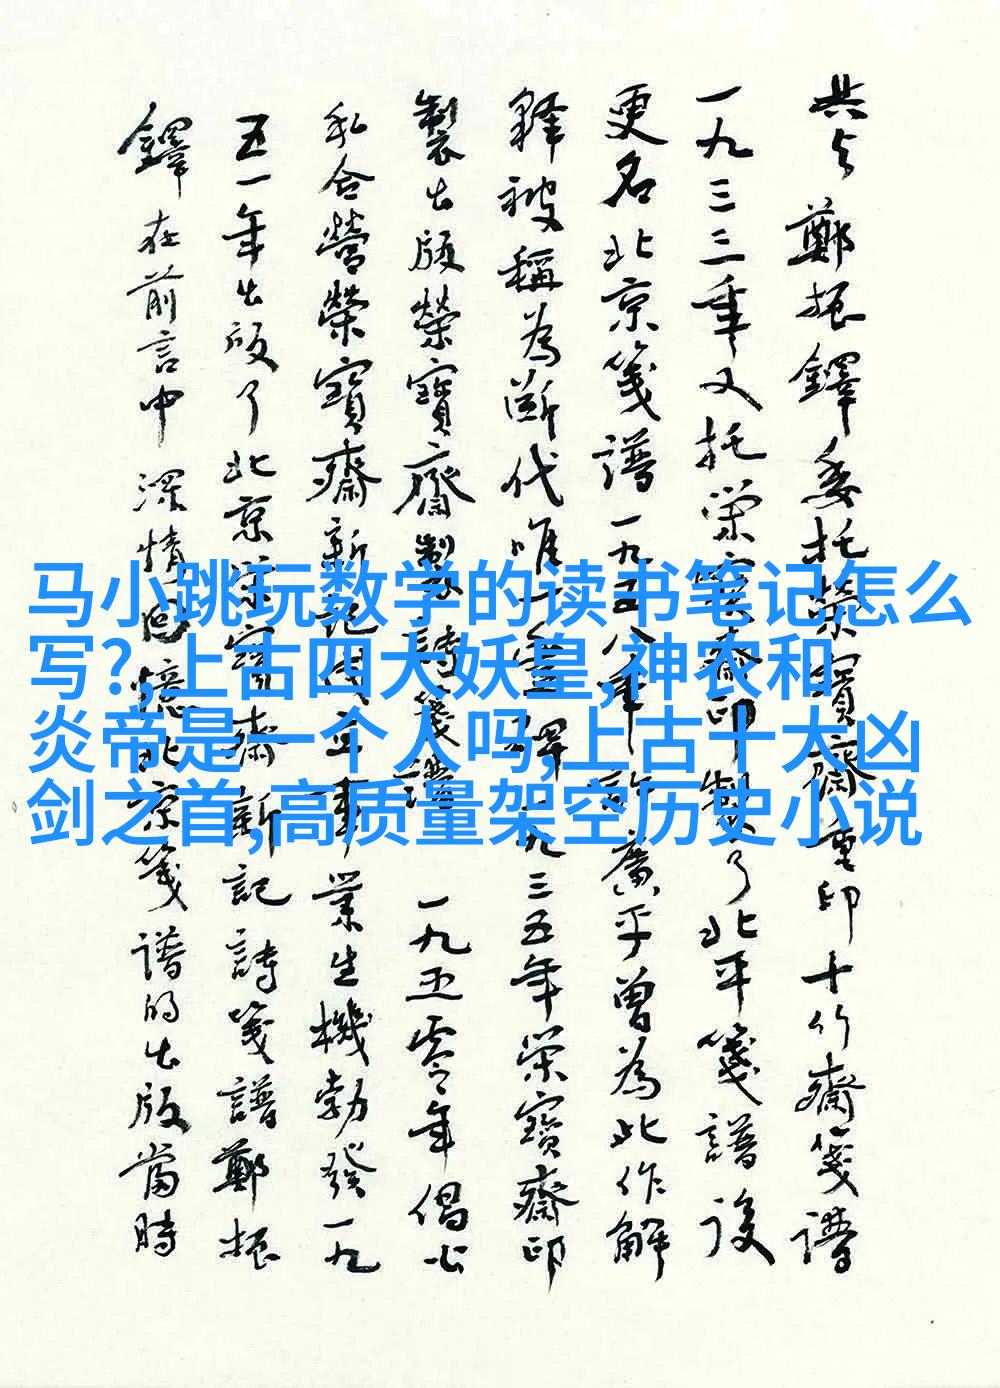 共与鄭振鐸委托榮寶齋重印十竹齋箋譜
一九三三年又托榮寶齋印製了北平箋譜後
更名北京箋譜一九五八年許廣平曾為此作解
釋被稱為断代唯一豐碑一九三五年榮寶齋印
製出版榮寶齋製詩箋譜一九五零年倡公
私合營榮寶齋新記事業生機勃發一九
五一年出版了北京榮寶齋新記詩箋譜鄭振
鐸在前言中深情回憶北京箋譜的出版當時
马小跳玩数学的读书笔记怎么
写?,上古四大妖皇,神农和
炎帝是一个人吗,上古十大凶
剑之首,高质量架空历史小说